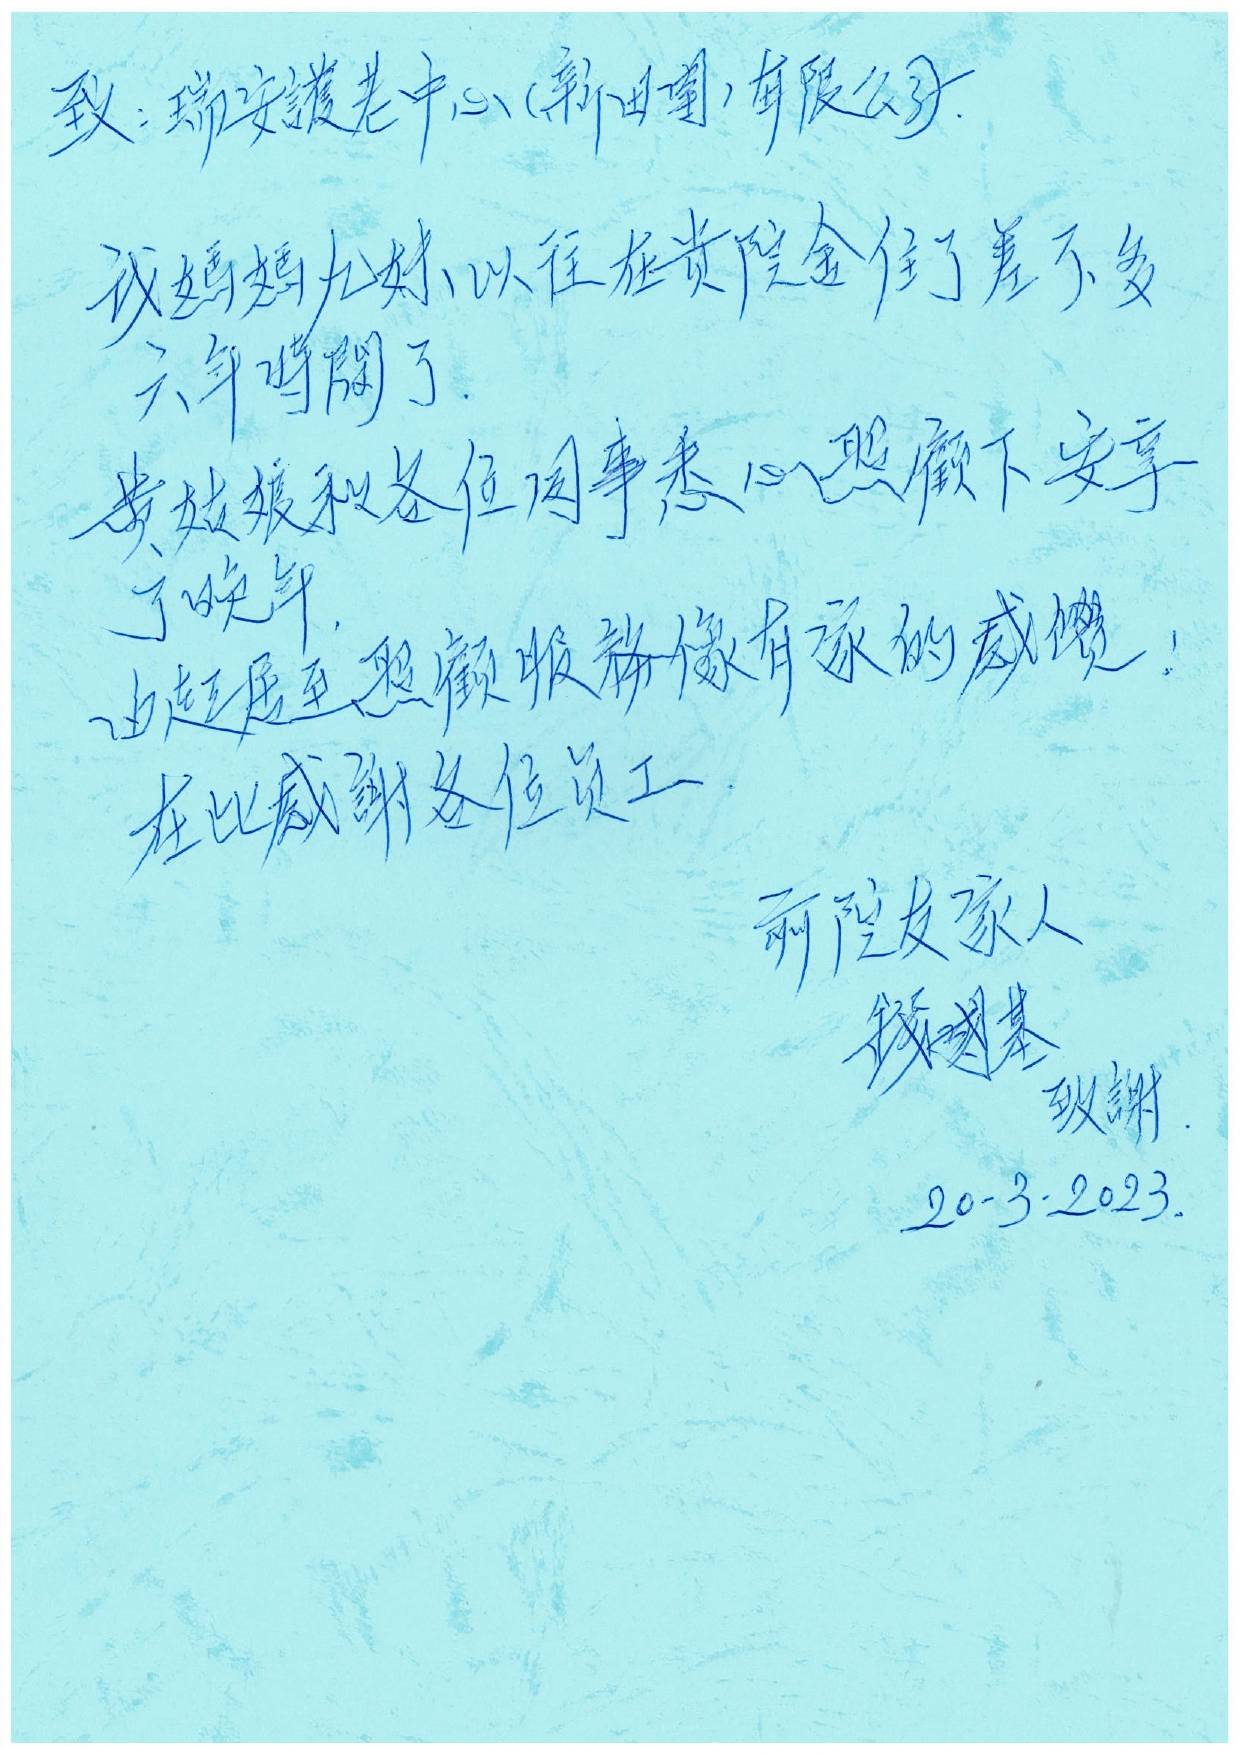 致:瑞安護老中心(新田圍)有限公司.
我媽媽九妹、以往在貴院舍住了差不多
六年時間了.
黄姑娘和各位同事悉心照顧下安享
了晚年.
由起居至照顧服務像有家的感覺!
在此感謝各位员工.
前院友家人
錢國基
致謝.
20-3-2023.